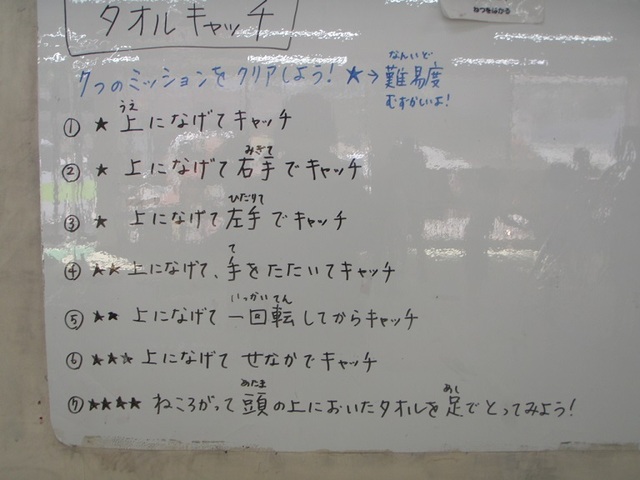 ねつをはかる
タオルキャッチ
7つのミッションをクリアしよう! ★→難易度
なんいど
むずかしいよ!
① ★ 上になげてキャッチ
うえ
② ★ 上になげて右手でキャッチ
みぎて
③ ★ 上になげて左手でキャッチ
ひだりて
④ ★★ 上になげて、手をたたいてキャッチ
て
⑤ ★★ 上になげて 一回転してからキャッチ
いっかいてん
⑥ ★★★ 上になげて せなかでキャッチ
⑦ ★★★★ ねころがって頭の上においたタオルを足でとってみよう!
あたま
あし